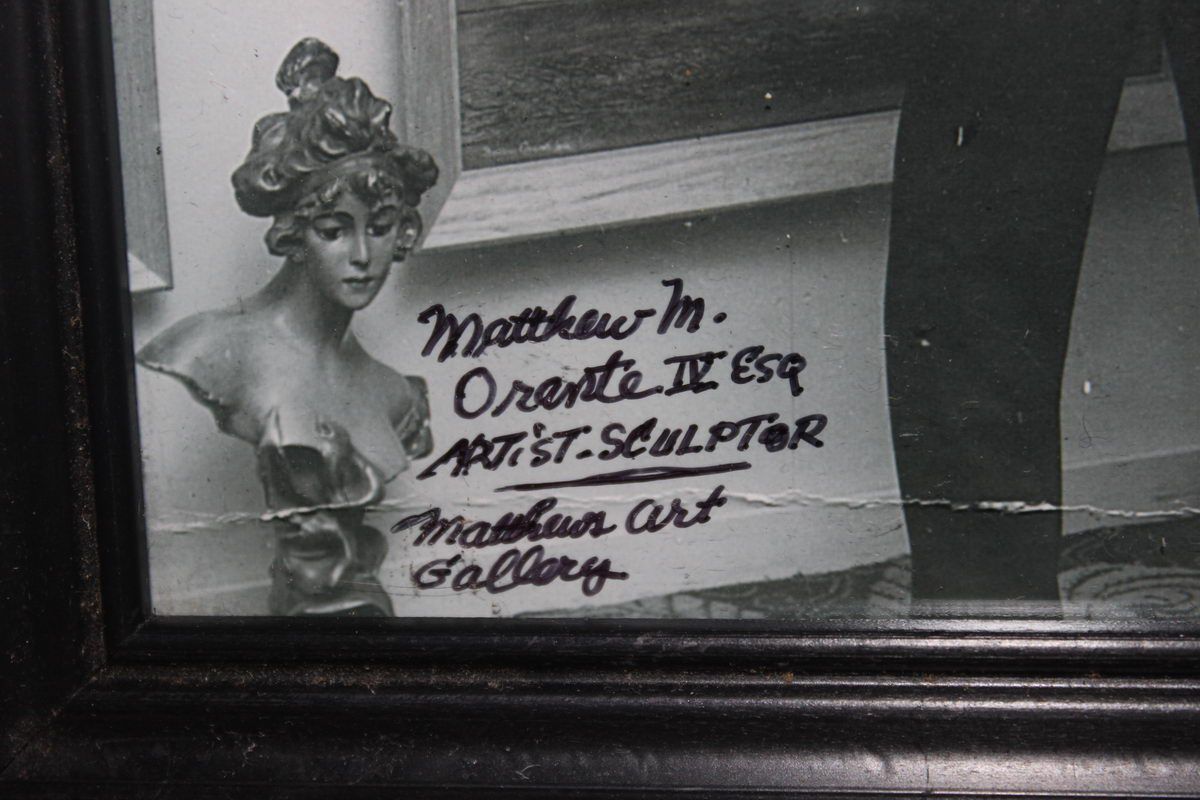 Matthew M.
Orante IV Esq
ARTIST-SCULPTOR
Matthews Art
Gallery